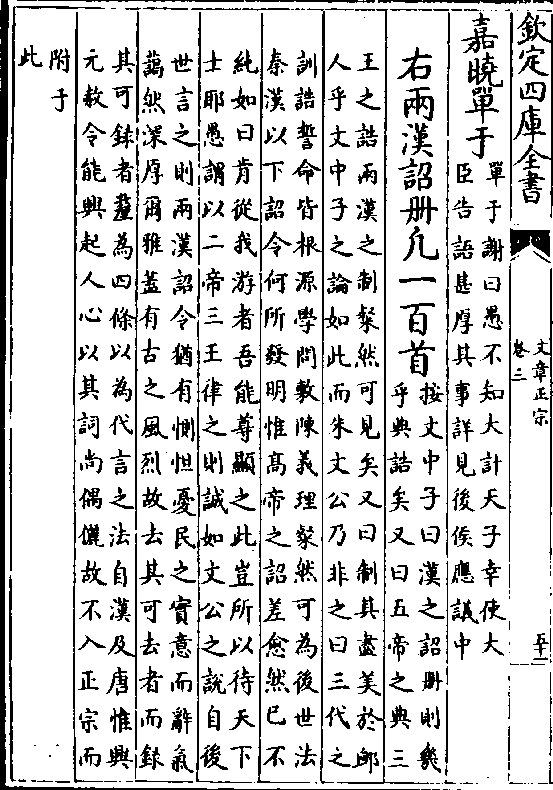 欽定四庫全書
文章正宗
卷三
嘉曉單于
單于謝曰愚不知大計天子幸使大
臣告語甚厚其事詳見後侯應議中
右兩漢詔册凡一百首
按文中子曰漢之詔册則幾
乎典誥矣又曰五帝之典三
王之誥兩漢之制粲然可見矣又曰制其盡美於邮
人乎文中子之論如此而朱文公乃非之曰三代之
訓誥誓命皆根源學問敷陳義理粲然可為後世法
秦漢以下詔令何所發明惟髙帝之詔差愈然已不
純如曰肯從我游者吾能尊顯之此豈所以待天下
士耶愚謂以二帝三王律之則誠如文公之說自後
世言之則兩漢詔令猶有惻怛憂民之實意而辭氣
藹然深厚爾雅蓋有古之風烈故去其可去者而録
其可録者釐為四條以為代言之法自漢及唐惟興
元赦令能興起人心以其詞尚偶儷故不入正宗而
附于
此